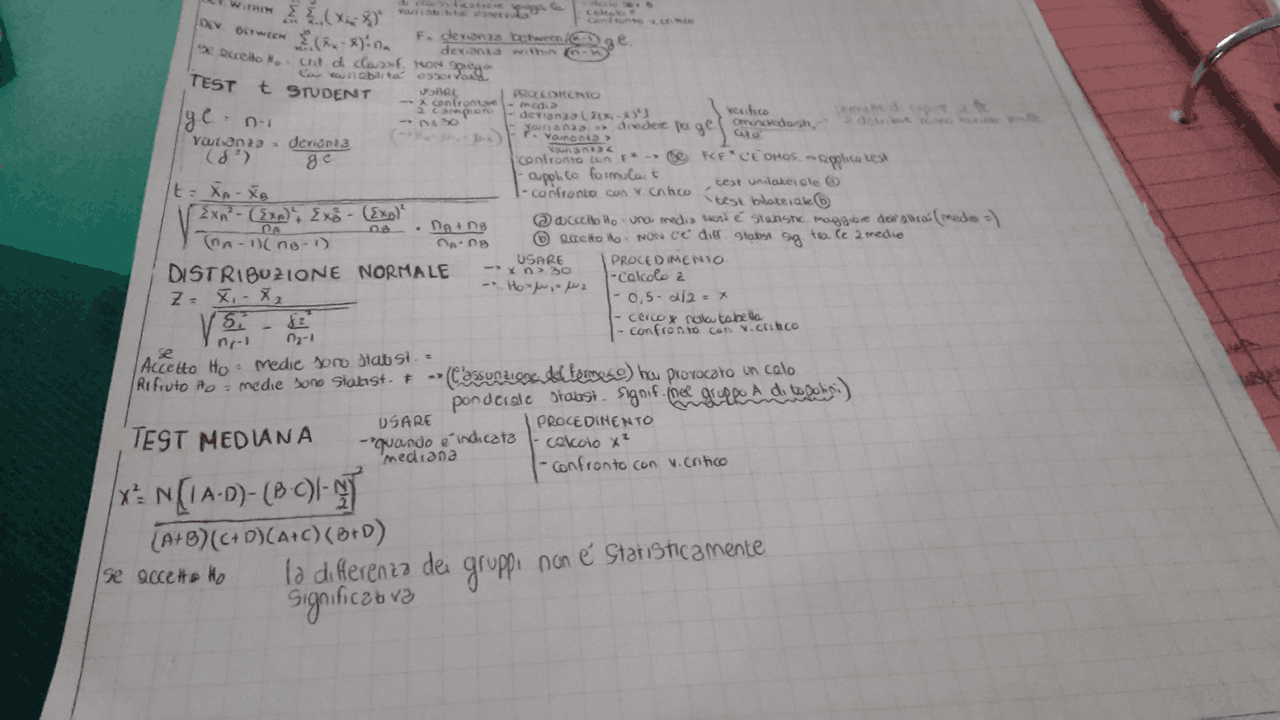 DEV. WITHIN Σ Σ (x - x̄)²
variabilità osservata
calcolo F
confronto v. critico
DEV. BETWEEN Σ (x̄ - x̄)²·n
F = devianza between/(k-1) ge.
devianza within (n-k)
se accetto H0 = crit. di classif. NON spiega
la variabilità osservata
TEST t STUDENT
USARE
→ x confrontare
2 campioni
→ n≤30
PROCEDIMENTO
- media
- devianza
- varianza → dividere per ge
- F = varianza >
varianza <
verifico
confronto con F* → se F<F* C'È OMOS. → applica test
- applico formula t
- confronto con v critico
test unilaterale (a)
test bilaterale (b)
ge = n-1
varianza = devianza
(δ²) ge
t = x̄A - x̄B
√ Σ xA² - (Σ xA)² + Σ xB² - (Σ xB)² · nA + nB
nA nB nA · nB
(nA - 1)(nB - 1)
(a) accetto H0 = una media non è statistic. maggiore dell'altra (medie =)
(b) accetto H0 = NON C'È diff. statist. sig tra le 2 medie
DISTRIBUZIONE NORMALE
USARE
→ x n > 30
→ H0 = μ1 = μ2
PROCEDIMENTO
- calcolo z
- 0,5 - α/2 = x
- cerco x nella tabella
- confronto con v. critico
Z = x̄1 - x̄2
√ δ1² - δ2²
n1-1 n2-1
se
Accetto H0 = medie sono statist. =
Rifiuto H0 = medie sono statist. ≠ → (l'assunzione del farmaco) ha provocato un calo
ponderale statist. signif. (nel gruppo A di topolini)
TEST MEDIANA
USARE
→ quando è indicata
mediana
PROCEDIMENTO
- calcolo x²
- confronto con v. critico
x² = N[|(A·D) - (B·C)| - N/2]²
(A+B)(C+D)(A+C)(B+D)
se accetto H0 la differenza dei gruppi non è statisticamente
significativa